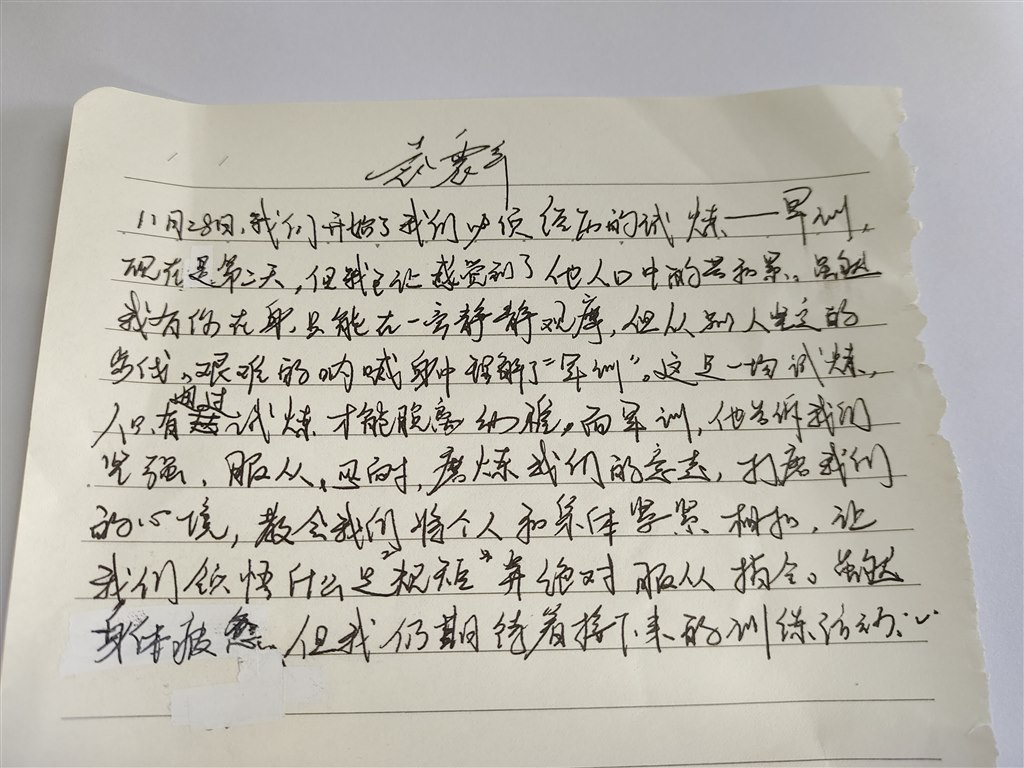 袁震
11月28日,我们开始了我们必须经历的试炼——军训,
现在是第二天,但我已让感觉到了他人口中的苦和累。虽然
我有伤在身,只能在一旁静静观摩,但从别人坚定的
步伐、艰难的呐喊身中理解了“军训”。这是一场试炼,
人只有通过试炼才能脱离幼稚。而军训,他告诉我们
坚强,服从、及时,磨炼我们的意志,打磨我们
的心境,教会我们将个人和集体紧紧相扣,让
我们领悟什么是“规矩”并绝对服从指令。虽然
身体疲惫,但我仍期待着接下来的训练活动